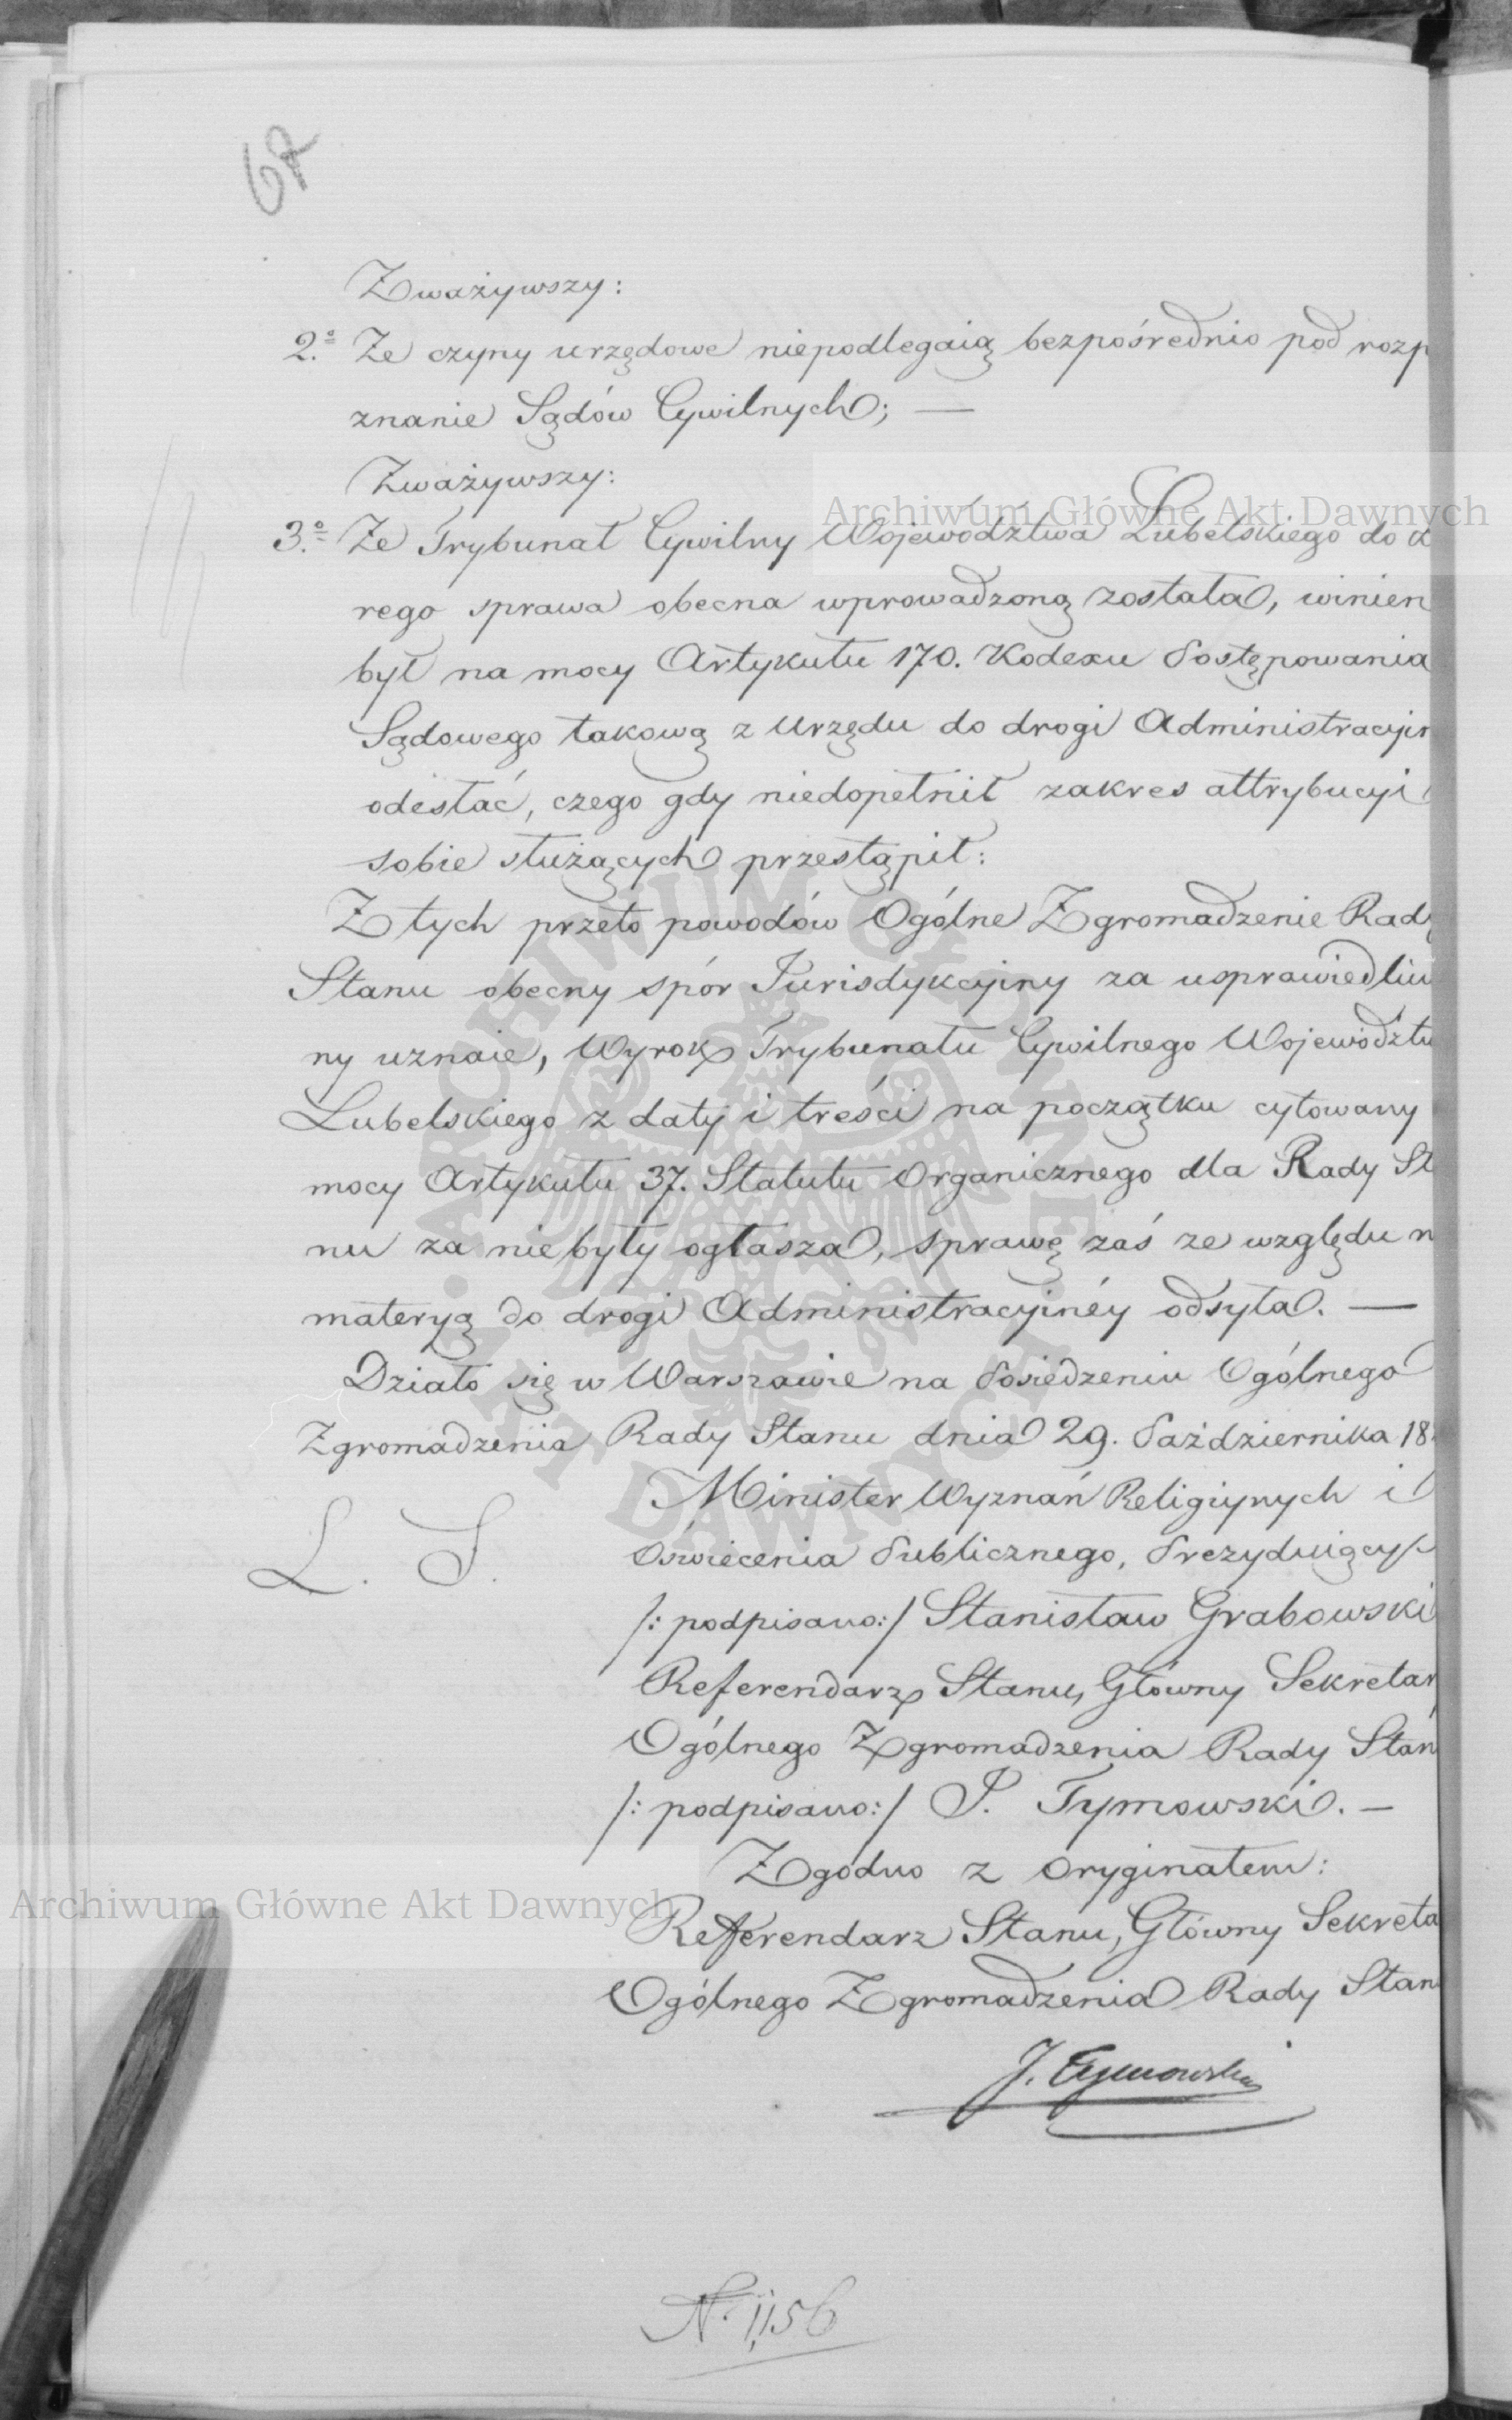 67
Zważywszy:
2.º Że czyny urzędowe niepodlegaią bezpośrednio pod rozp
znanie Sądów Cywilnych; —
Zważywszy:
3.º Że Trybunał Cywilny Województwa Lubelskiego do
rego sprawa obecna wprowadzoną została, winien
był na mocy Artykułu 170. Kodexu Postępowania
Sądowego takową z Urzędu do drogi Administracyin
odesłać, czego gdy niedopełnił zakres attrybucyi
sobie służących przestąpił:
Z tych przeto powodów Ogólne Zgromadzenie Rady
Stanu obecny spór Jurisdykcyiny za usprawiedliw
ny uznaie, Wyrok Trybunału Cywilnego Województw
Lubelskiego z daty i treści na początku cytowany
mocy Artykułu 37. Statutu Organicznego dla Rady St
nu za niebyły ogłasza, sprawę zaś ze względu n
materyą do drogi Administracyinéy odsyła. —
Działo się w Warszawie na Posiedzeniu Ogólnego
Zgromadzenia Rady Stanu dnia 29. Października 18
Minister Wyznań Religiynych i
L. S.
Oświecenia Publicznego, Prezyduiący
/: podpisano:/ Stanisław Grabowski
Referendarz Stanu, Główny Sekretar
Ogólnego Zgromadzenia Rady Stan
/: podpisano:/ J. Tymowski. —
Zgodno z Oryginałem:
Referendarz Stanu, Główny Sekreta
Ogólnego Zgromadzenia Rady Stan
J. Tymowski
N. 1,156
Archiwum Główne Akt Dawnych
Archiwum Główne Akt Dawnych
ARCHIWUM GŁÓWNE AKT DAWNYCH